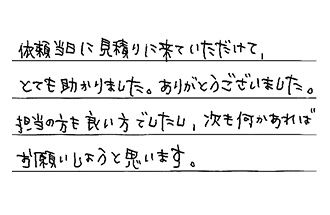 依頼当日に見積りに来ていただけて、
とても助かりました。ありがとうございました。
担当の方も良い方でしたし、次も何かあれば
お願いしようと思います。